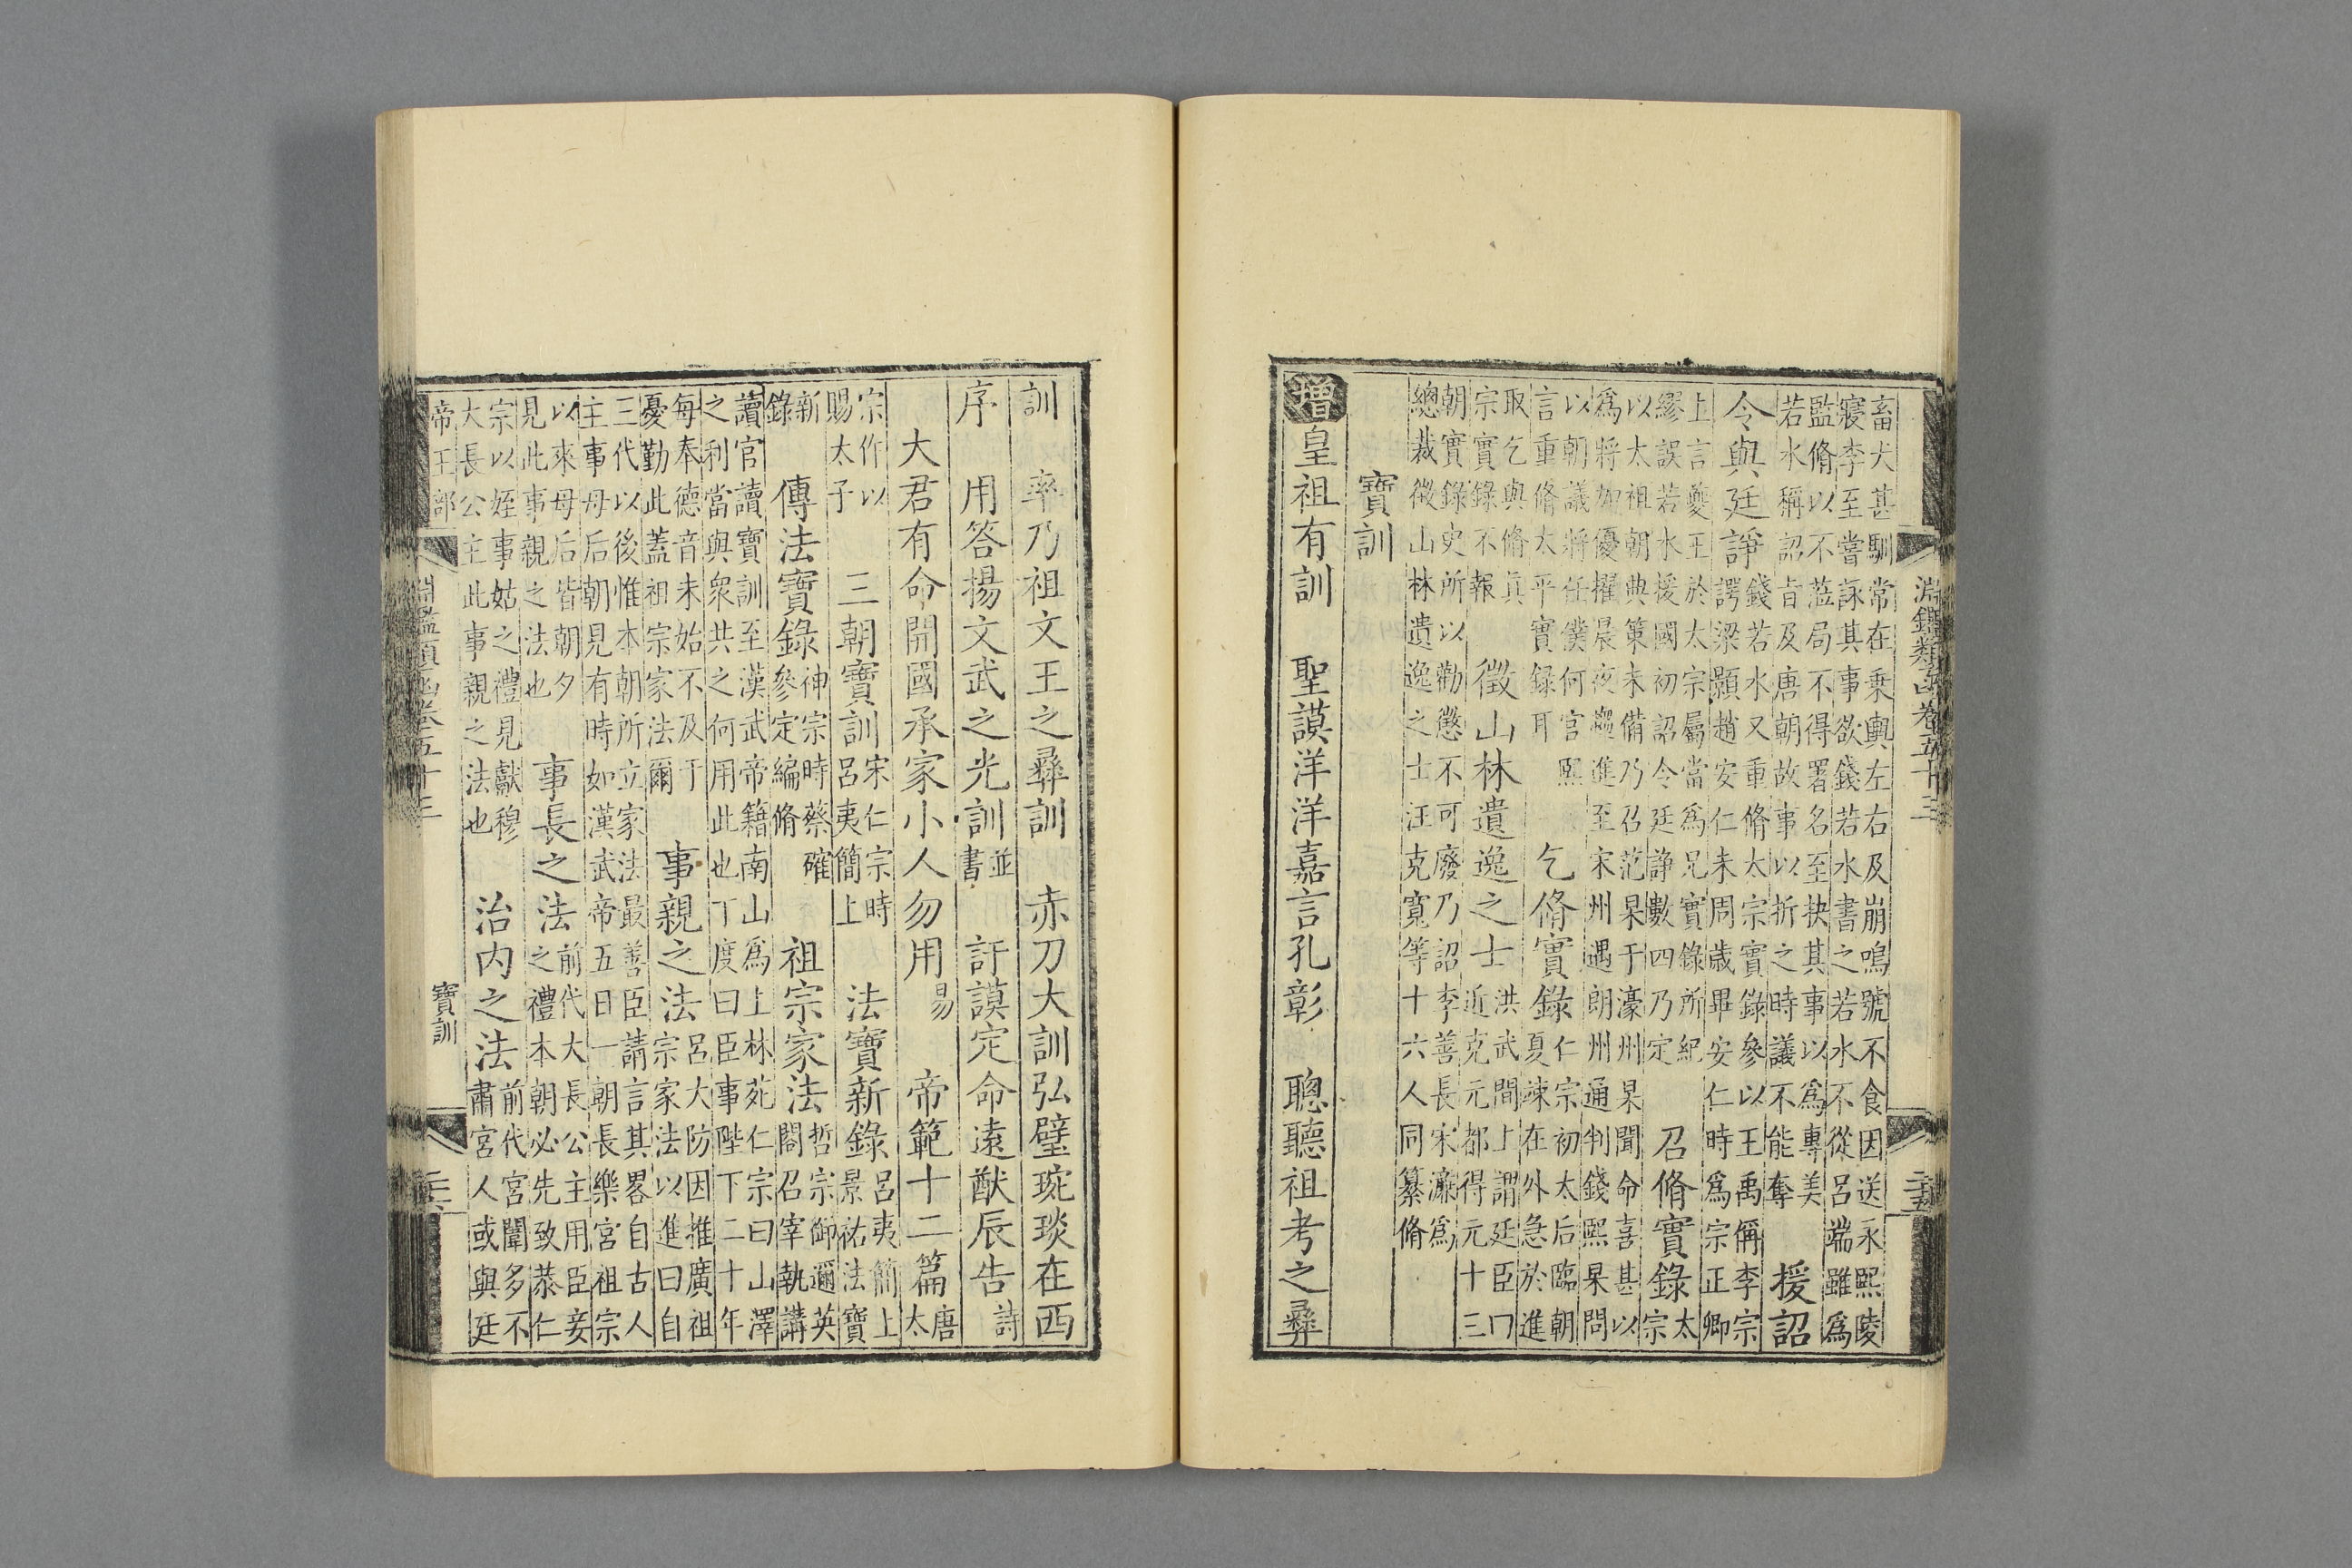 淵鑑類函卷五十三 二十五
畜犬甚馴常在乗輿左右及崩鳴號不食因送永熙陵
寢李至嘗詠其事欲錢若水書之若水不從呂端雖為
監脩以不蒞局不得署名至抉其事以為專美
若水稱詔旨及唐朝故事以折之時議不能奪
援詔
令與廷諍
錢若水又重脩太宗實錄參以王禹偁李宗
諤梁顥趙安仁未周歳畢安仁時為宗正卿
上言夔王於太宗屬當為兄實錄所紀
繆誤若水援國初詔令廷諍數四乃定
召脩實錄
太
宗
以太祖朝典策未備乃召范杲于濠州杲聞命喜甚以
為將加優擢晨夜趨進至宋州遇朗州通判錢熙杲問
以朝議將任僕何官熙
言重脩太平實録耳
乞脩實錄
仁宗初太后臨朝
夏竦在外急於進
取乞與脩真
宗實錄不報
徵山林遺逸之士
洪武間上謂廷臣曰
近克元都得元十三
朝實錄史所以勸懲不可廢乃詔李善長宋濂為
總裁徵山林遺逸之士汪克寬等十六人同纂脩
寶訓
增皇祖有訓 聖謨洋洋嘉言孔彰 聰聽祖考之彝
訓 率乃祖文王之彝訓 赤刀大訓弘璧琬琰在西
序 用答揚文武之光訓
並
書
訏謨定命遠猷辰告
詩
大君有命開國承家小人勿用
易
帝範十二篇
唐
太
宗作以
賜太子
三朝寶訓
宋仁宗時
呂夷簡上
法寶新錄
呂夷簡上
景祐法寶
新
錄
傳法寶錄
神宗時蔡確
參定編脩
祖宗家法
哲宗御邇英
閣召宰執講
讀官讀寶訓至漢武帝籍南山為上林苑仁宗曰山澤
之利當與衆共之何用此也丁度曰臣事陛下二十年
每奉德音未始不及于
憂勤此蓋祖宗家法爾
事親之法
呂大防因推廣祖
宗家法以進曰自
三代以後惟本朝所立家法最善臣請言其畧自古人
主事母后朝見有時如漢武帝五日一朝長樂宮祖宗
以來母后皆朝夕
見此事親之法也
事長之法
前代大長公主用臣妾
之禮本朝必先致恭仁
宗以姪事姑之禮見獻穆
大長公主此事親之法也
治内之法
前代宮闈多不
肅宮人或與廷
帝王部 淵鑑類函卷五十三 寶訓 二十六